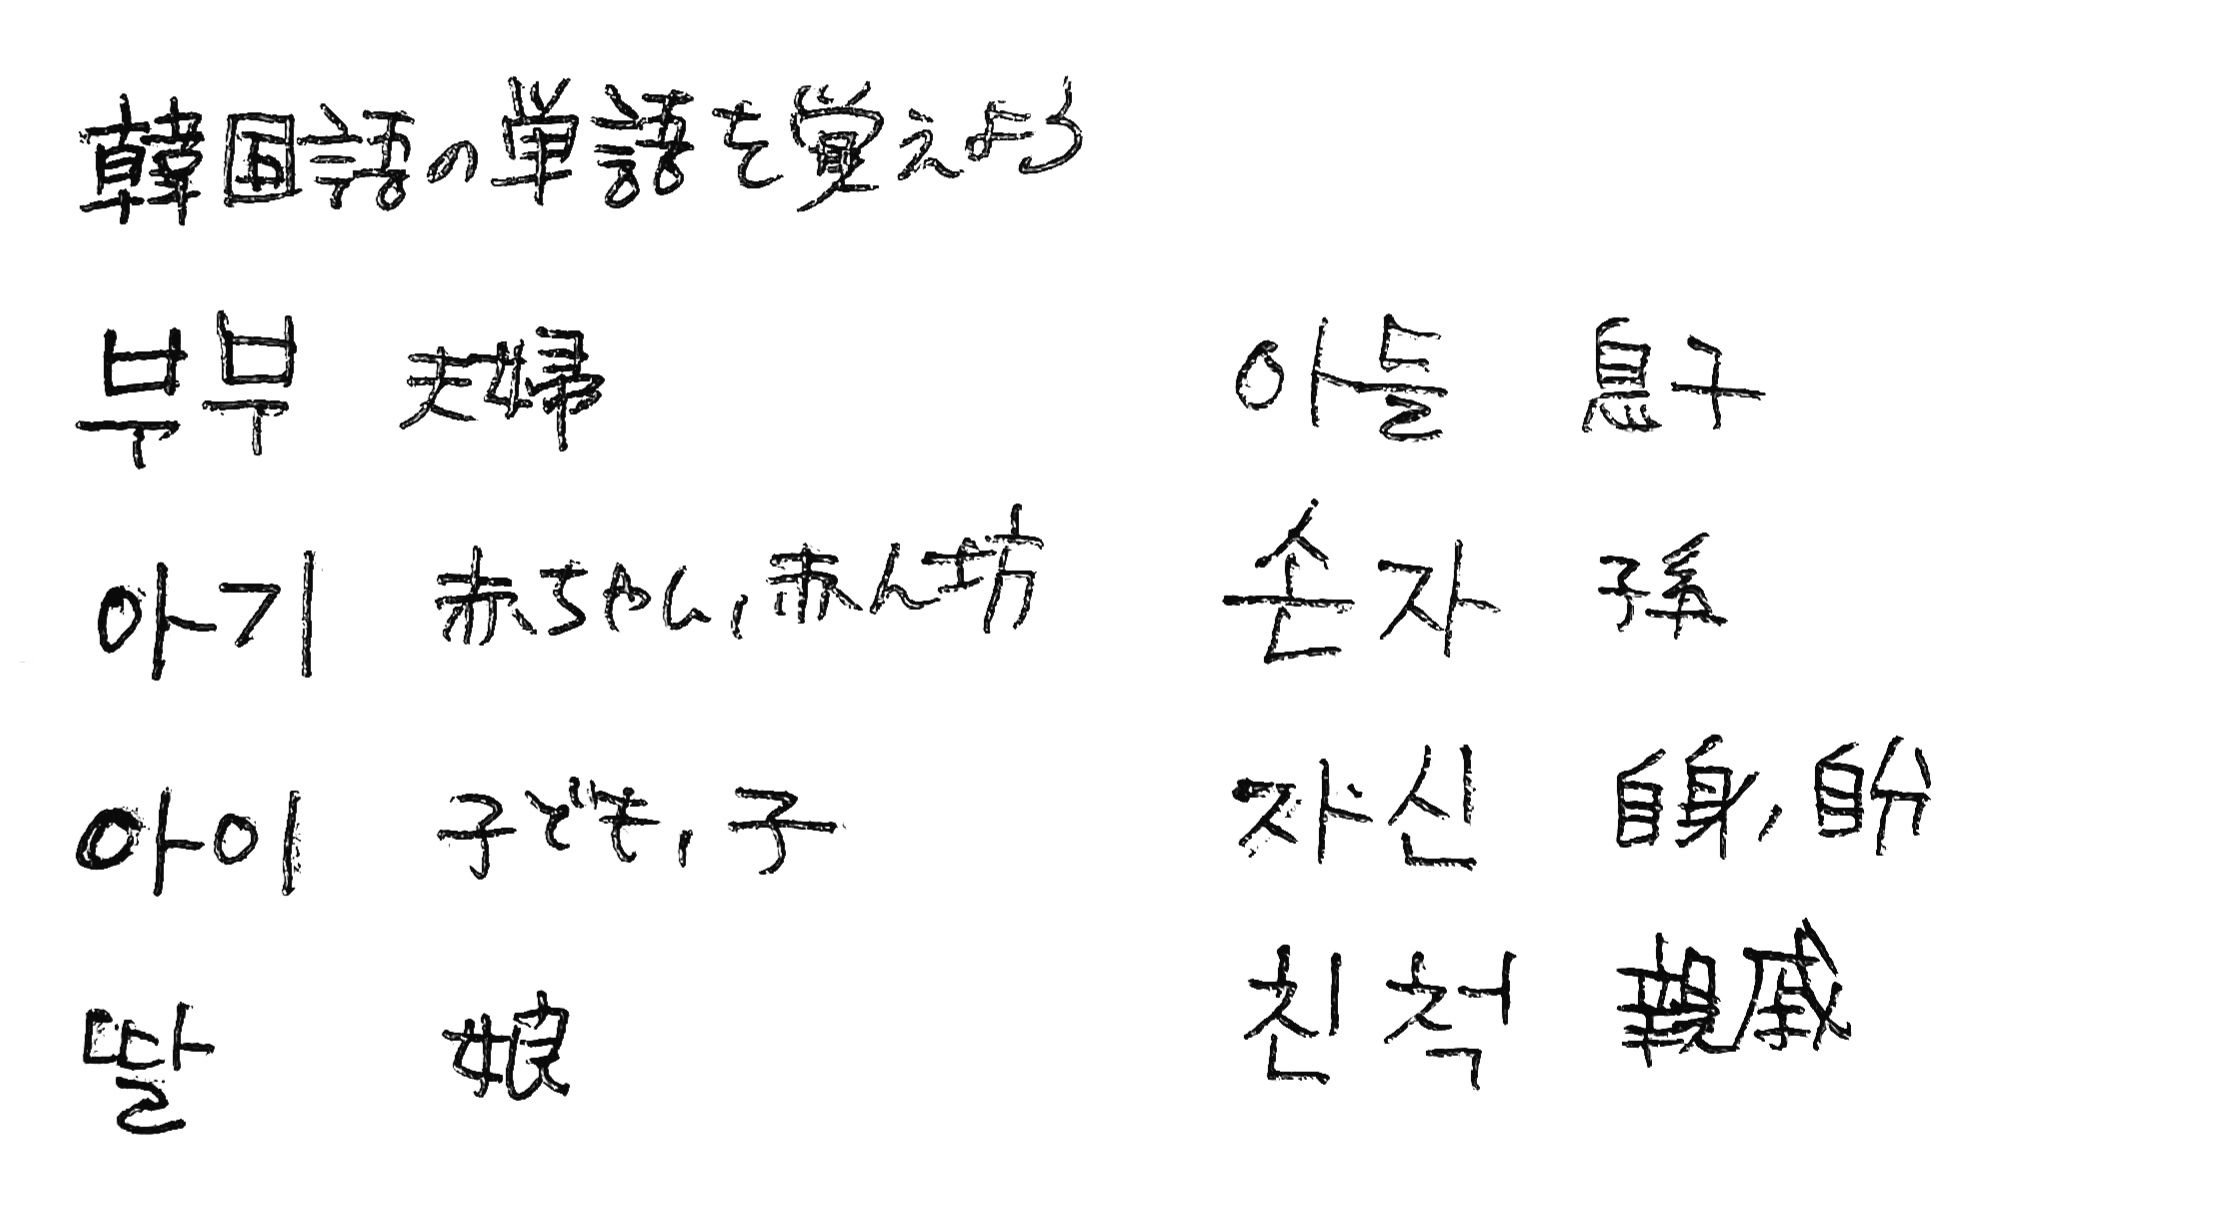 韓国語の単語を覚えよう
부부 夫婦
아기 赤ちゃん,赤ん坊
아이 子ども,子
딸 娘
아들 息子
손자 孫
자신 自身,自分
친척 親戚